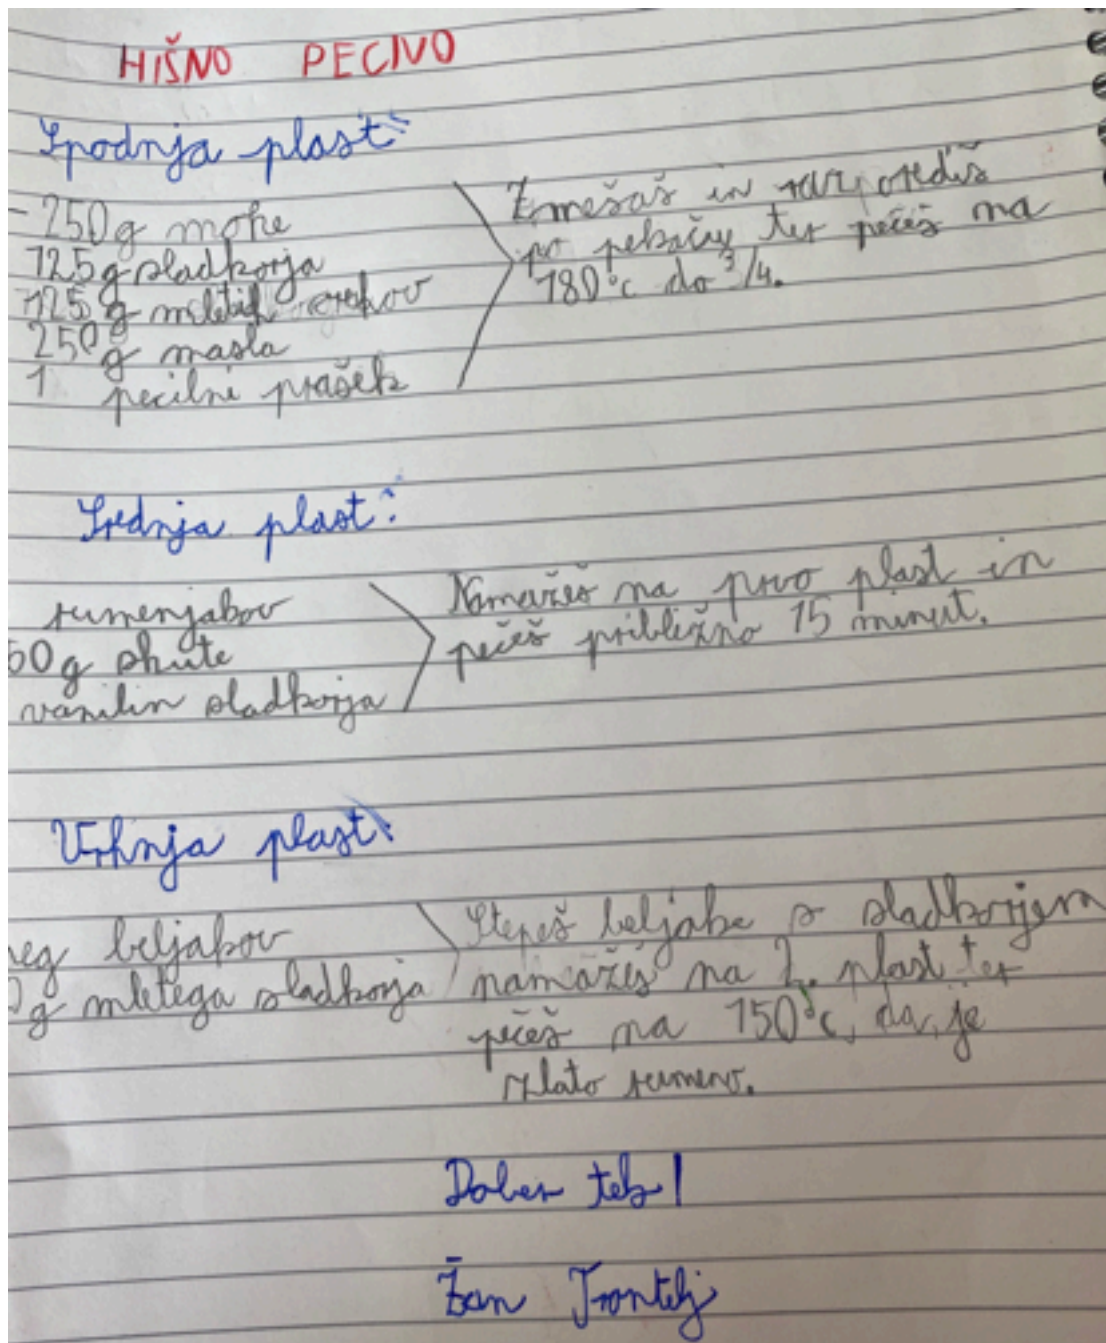 HIŠNO PECIVO
Spodnja plast:
- 250g moke
125g sladkorja
125g mletih orehov
250g masla
1 pecilni prašek
Zmešaš in razporediš
po pekaču ter pečeš na
180°c do 3/4.
Srednja plast:
rumenjakov
50g skute
vanilin sladkorja
Namažeš na prvo plast in
pečeš približno 15 minut.
Vrhnja plast:
neg beljakov
g mletega sladkorja
Stepeš beljake s sladkorjem
namažeš na 2. plast ter
pečeš na 150°c, da je
zlato rumeno.
Dober tek!
Žan Trontelj